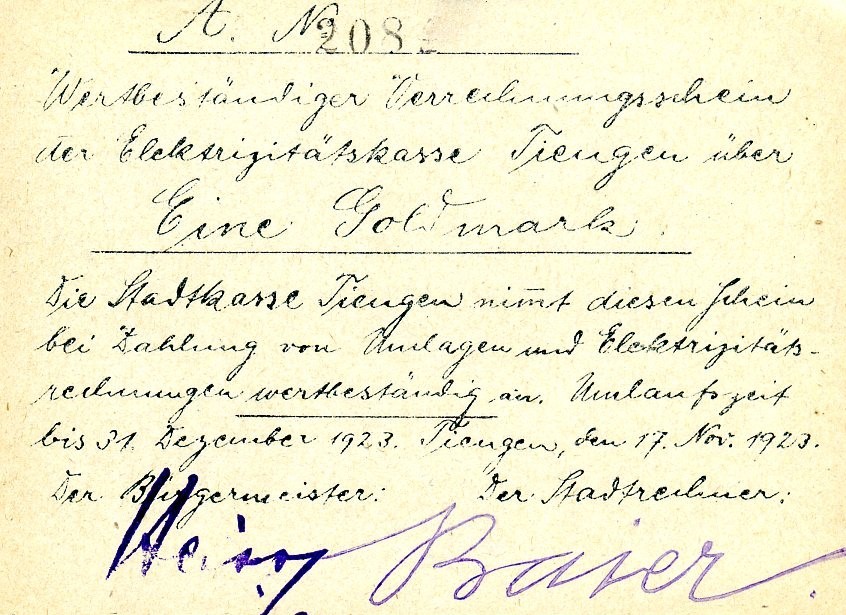 A. No 208
Wertbeständiger Verrechnungsschein
der Elektrizitätskasse Tiengen über
Eine Goldmark.
Die Stadtkasse Tiengen nim̅t diesen Schein
bei Zahlung von Umlagen und Elektrizitäts-
rechnungen wertbeständig an. Umlaufszeit
bis 31. Dezember 1923. Tiengen, den 17. Nov. 1923.
Der Bürgermeister: Der Stadtrechner:
Baier